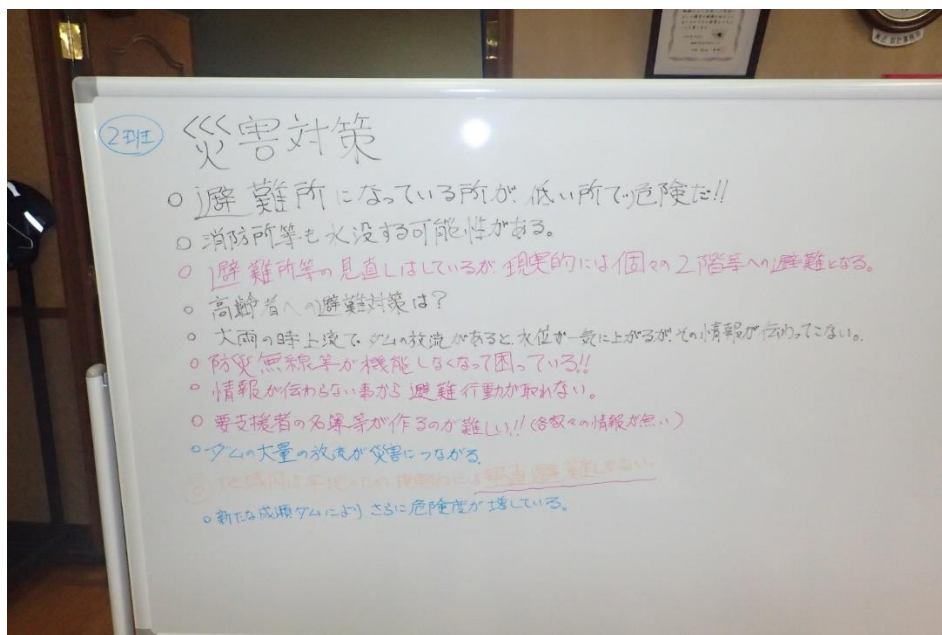 2班
災害対策
○避難所になっている所が、低い所で危険だ!!
○消防所等も水没する可能性がある。
○避難所等の見直しはしているが現実的には個々の2階等への避難となる。
○高齢者への避難対策は?
○大雨の時上流でダムの放流があると、水位が一気に上がるが、その情報が伝わってこない。
○防災無線等が機能しなくなって困っている!!
○情報が伝わらない事から避難行動が取れない。
○要支援者の名簿等が作るのが難しい!!(各々の情報が無い)
○ダムの大量の放流が災害につながる。
○地域内は平地のため現実的には垂直避難しかない。
○新たな成瀬ダムによりさらに危険度が増している。